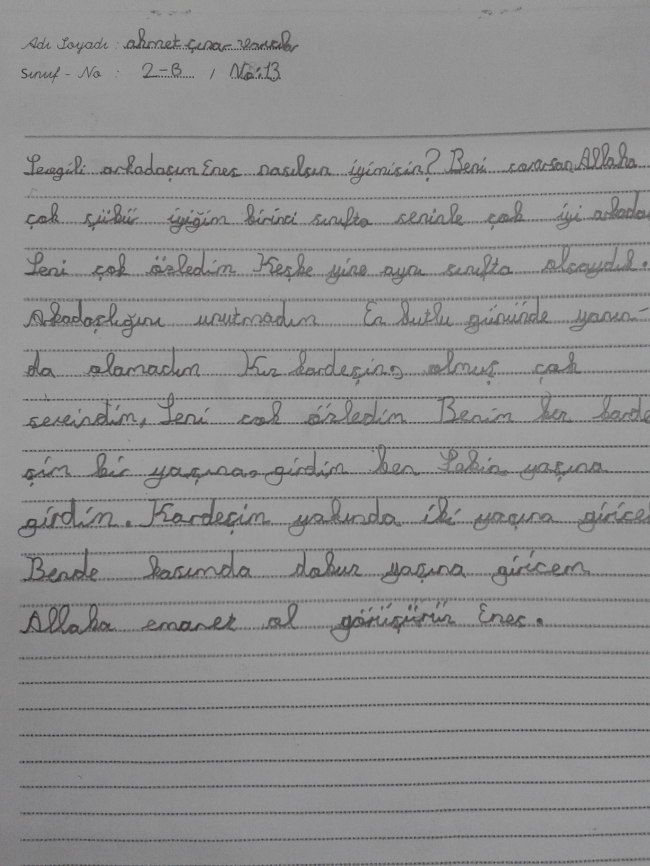 Adı Soyadı: ahmet çınar
Sınıf - No : 2-B / No:13
Sevgili arkadaşım Enes nasılsın iyimisin? Beni sorarsan Allaha
çok şükür iyiğim birinci sınıfta seninle çok iyi arkadaş
Seni çok özledim Keşke yine aynı sınıfta olsaydık.
Arkadaşlığını unutmadım En kutlu gününde yanın-
da olamadım Kız kardeşin olmuş çok
sevindim, Seni çok özledim Benim kız karde
şim bir yaşına girdim ben Sekiz yaşına
girdim. Kardeşim yakında iki yaşına girice
Bende kasımda dokuz yaşına giricem
Allaha emanet ol görüşürür Enes.